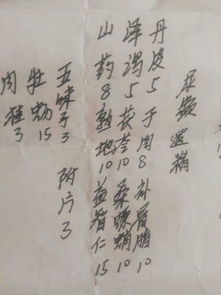 尿频 遗精
丹皮5 于肉8 补骨脂10
泽泻5 茯苓10 桑螵蛸10
山药8 熟地10 益智仁15
五味子3 附片3
牡蛎15
肉桂3